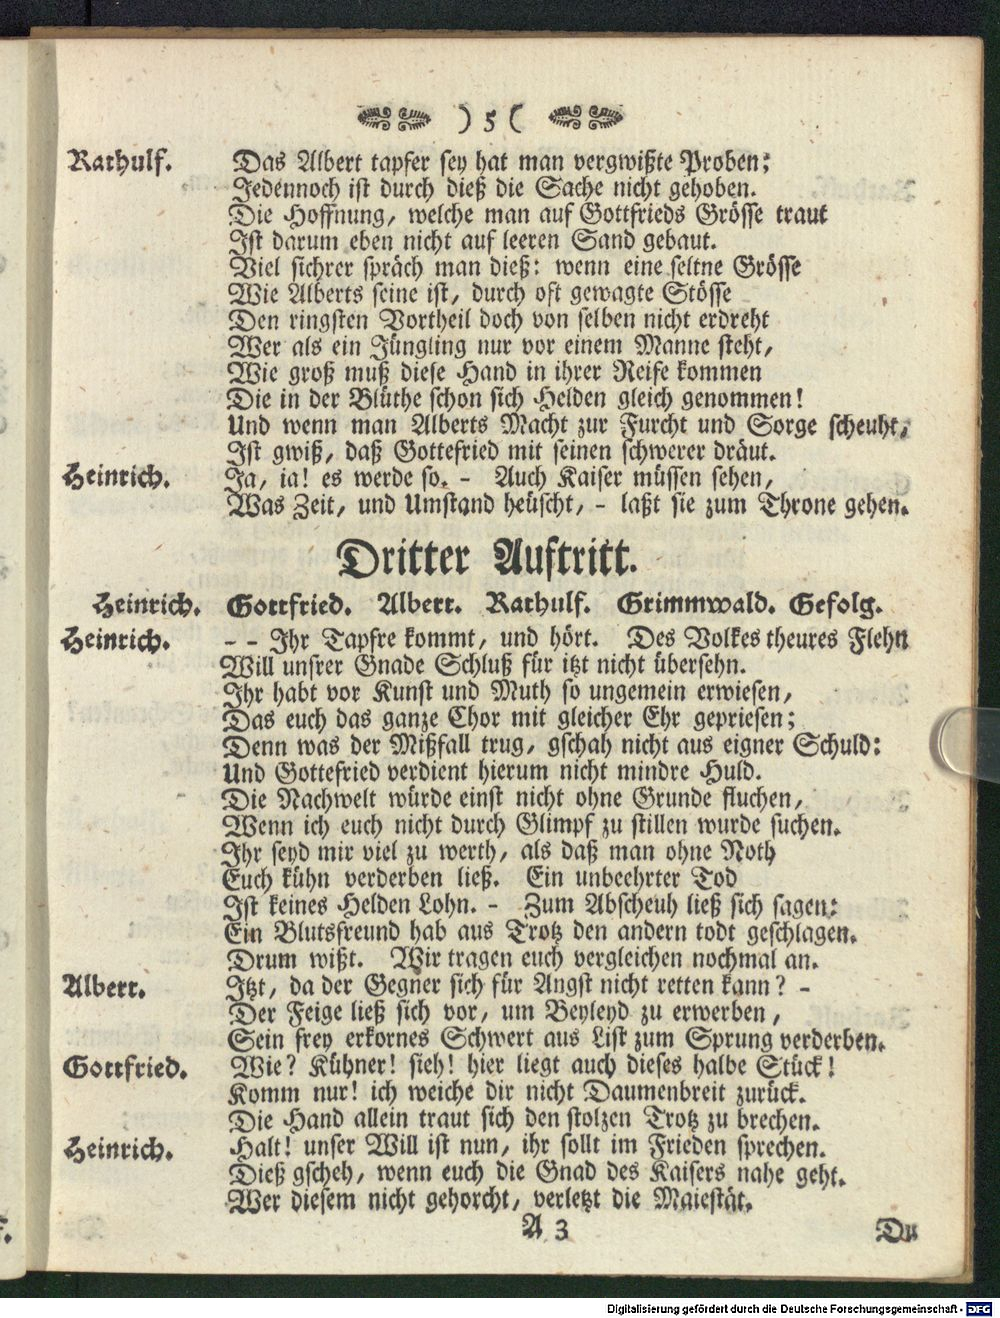 ) 5 (
Rathulf. Das Albert tapfer sey hat man vergwißte Proben;
Jedennoch ist durch dieß die Sache nicht gehoben.
Die Hoffnung, welche man auf Gottfrieds Grösse traut
Ist darum eben nicht auf leeren Sand gebaut.
Viel sichrer spräch man dieß: wenn eine seltne Grösse
Wie Alberts seine ist, durch oft gewagte Stösse
Den ringsten Vortheil doch von selben nicht erdreht
Wer als ein Jüngling nur vor einem Manne steht,
Wie groß muß diese Hand in ihrer Reife kommen
Die in der Blüthe schon sich Helden gleich genommen!
Und wenn man Alberts Macht zur Furcht und Sorge scheuht,
Ist gwiß, daß Gottefried mit seinen schwerer dräut.
Heinrich. Ja, ia! es werde so. - Auch Kaiser müssen sehen,
Was Zeit, und Umstand heüscht, - laßt sie zum Throne gehen.
Dritter Auftritt.
Heinrich. Gottfried. Albert. Rathulf. Grimmwald. Gefolg.
Heinrich. - - Ihr Tapfre kommt, und hört. Des Volkes theures Flehn
Will unsrer Gnade Schluß für itzt nicht übersehn.
Ihr habt vor Kunst und Muth so ungemein erwiesen,
Das euch das ganze Chor mit gleicher Ehr gepriesen;
Denn was der Mißfall trug, gschah nicht aus eigner Schuld:
Und Gottefried verdient hierum nicht mindre Huld.
Die Nachwelt würde einst nicht ohne Grunde fluchen,
Wenn ich euch nicht durch Glimpf zu stillen wurde suchen.
Ihr seyd mir viel zu werth, als daß man ohne Noth
Euch kühn verderben ließ. Ein unbeehrter Tod
Ist keines Helden Lohn. - Zum Abscheuh ließ sich sagen:
Ein Blutsfreund hab aus Trotz den andern todt geschlagen.
Drum wißt. Wir tragen euch vergleichen nochmal an.
Albert. Itzt, da der Gegner sich für Angst nicht retten kann? -
Der Feige ließ sich vor, um Beyleyd zu erwerben,
Sein frey erkornes Schwert aus List zum Sprung verderben.
Gottfried. Wie? Kühner! sieh! hier liegt auch dieses halbe Stück!
Komm nur! ich weiche dir nicht Daumenbreit zurück.
Die Hand allein traut sich den stolzen Trotz zu brechen.
Heinrich. Halt! unser Will ist nun, ihr sollt im Frieden sprechen.
Dieß gscheh, wenn euch die Gnad des Kaisers nahe geht.
Wer diesem nicht gehorcht, verletzt die Maiestät.
A 3 Du
Digitalisierung gefördert durch die Deutsche Forschungsgemeinschaft - DFG